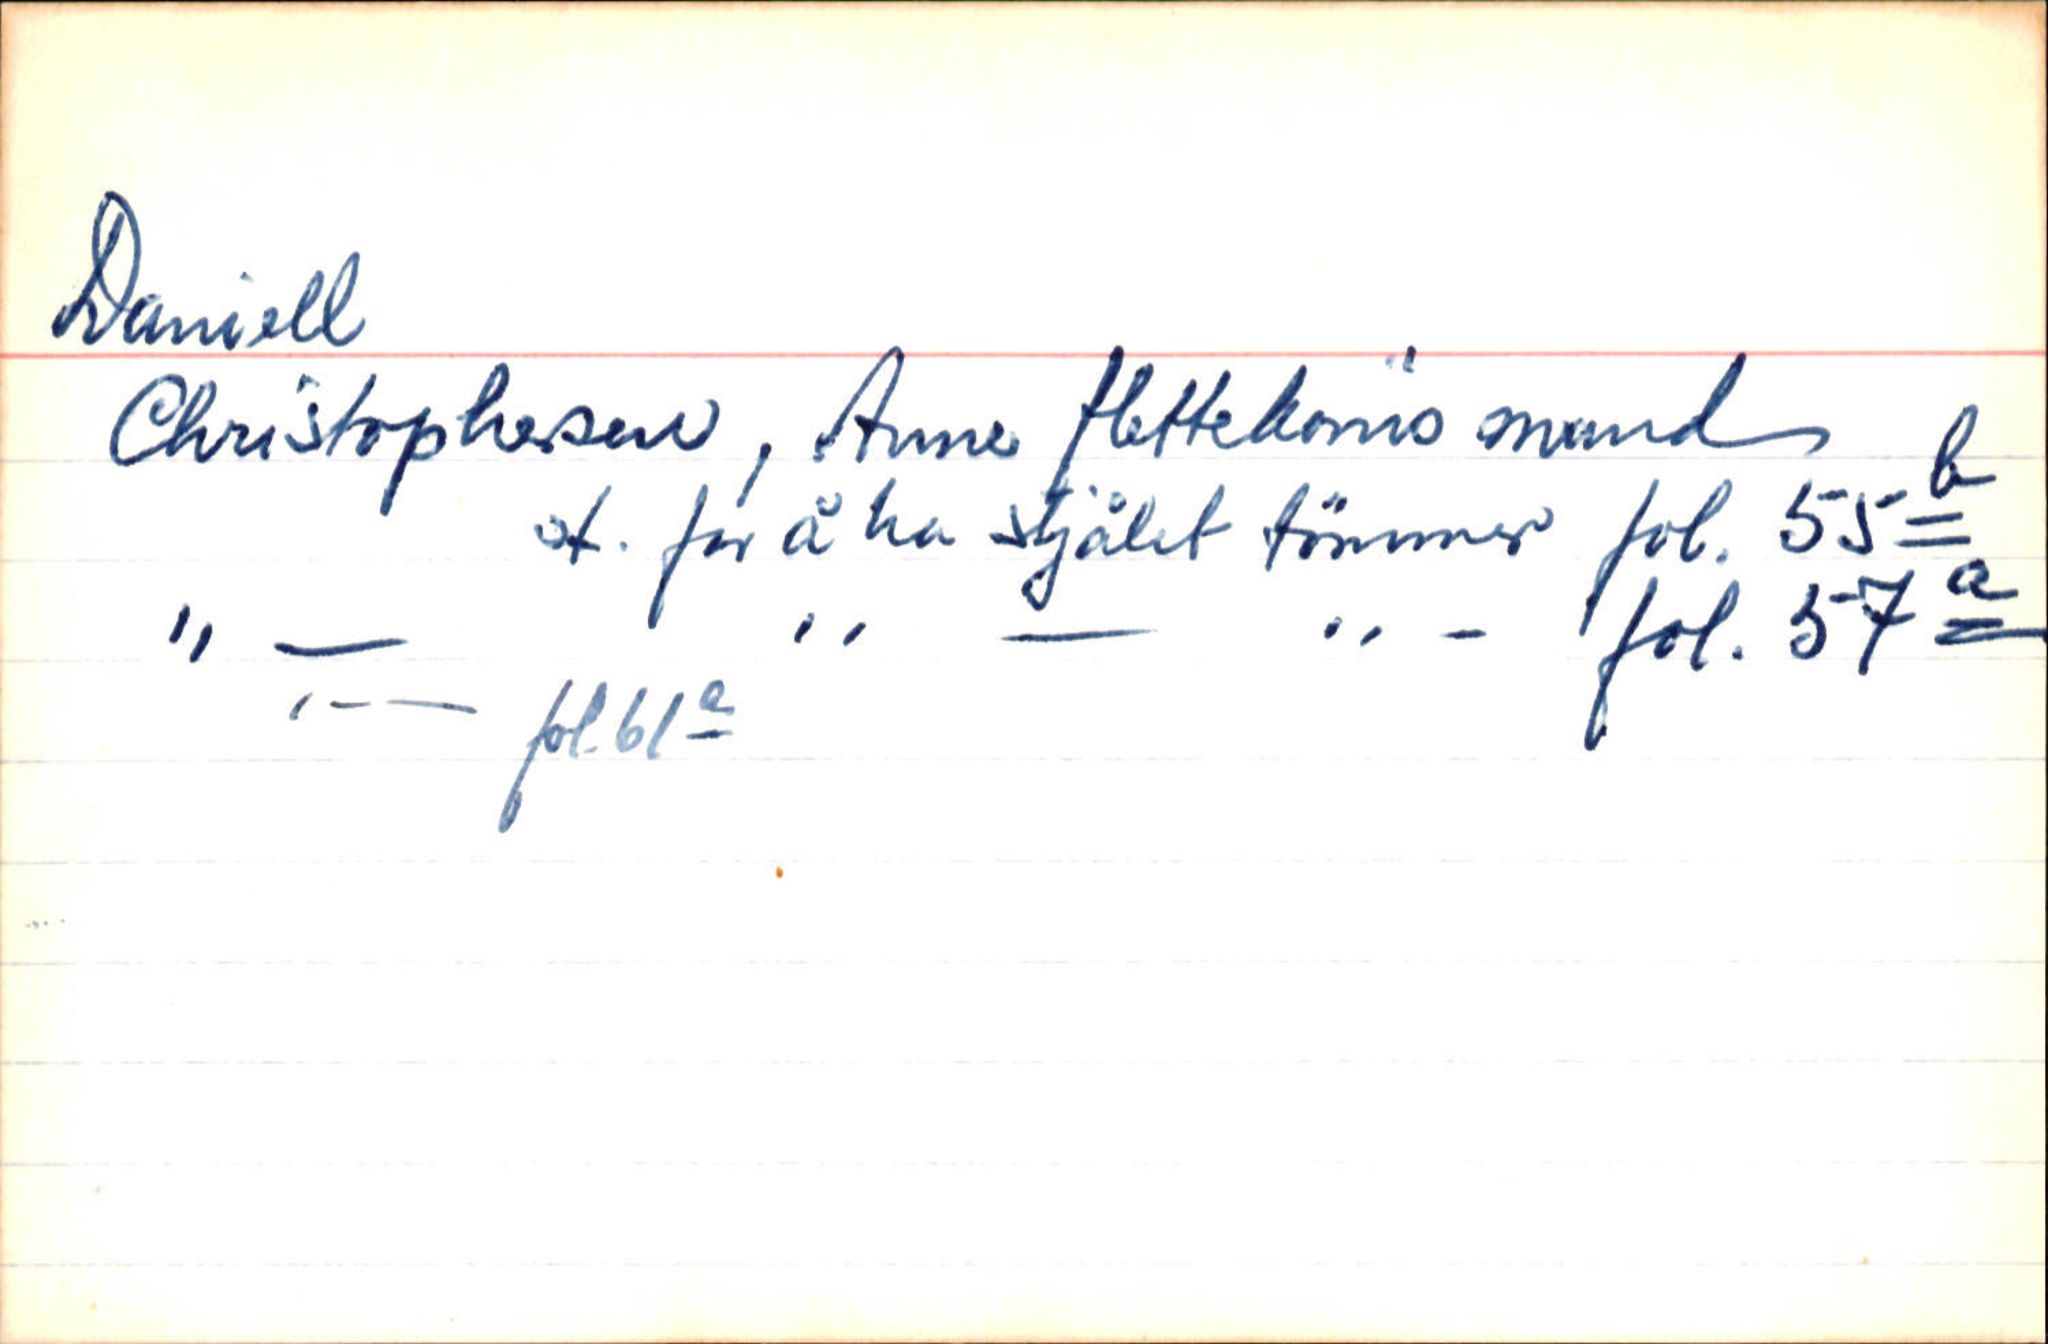 Daniell
Christophersen, Anne flettekonis mand
st. for å ha stjålet tömmer fol. 55 b
" — " — " - fol. 57 a
" - — fol. 61 a